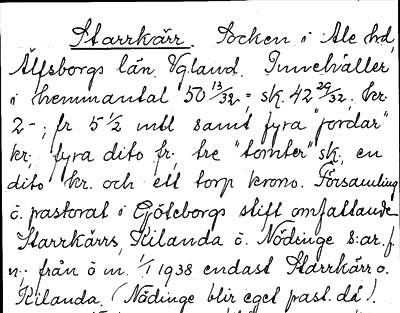 Starrkärr. Socken i Ale hd,
Älfsborgs län, Vgland. Innehåller
i hemmantal 50 13/32 = sk. 42 29/32, kr.
2-; fr 5 1/2 mtl samt fyra "jordar"
kr; fyra dito fr, tre "tomter" sk, en
dito kr. och ett torp krono. Församling
o. pastorat i Göteborgs stift omfattande
Starrkärrs, Kilanda o. Nödinge s:ar. f.
n; från o m. 1/1 1938 endast Starrkärr o.
Kilanda. (Nödinge blir eget past. då).